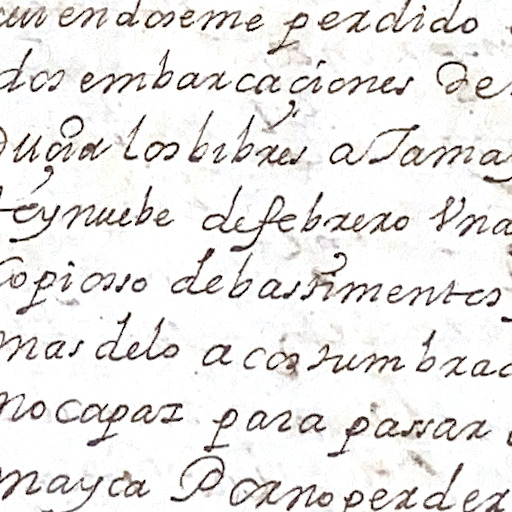 auiendoseme perdido
dos embarcaçiones de
ducia los bibres a Tama
teynuebe de febrero Vna
Copiosso debastimentos
mas delo acostumbrad
no capaz para passar
mayca Por no perder